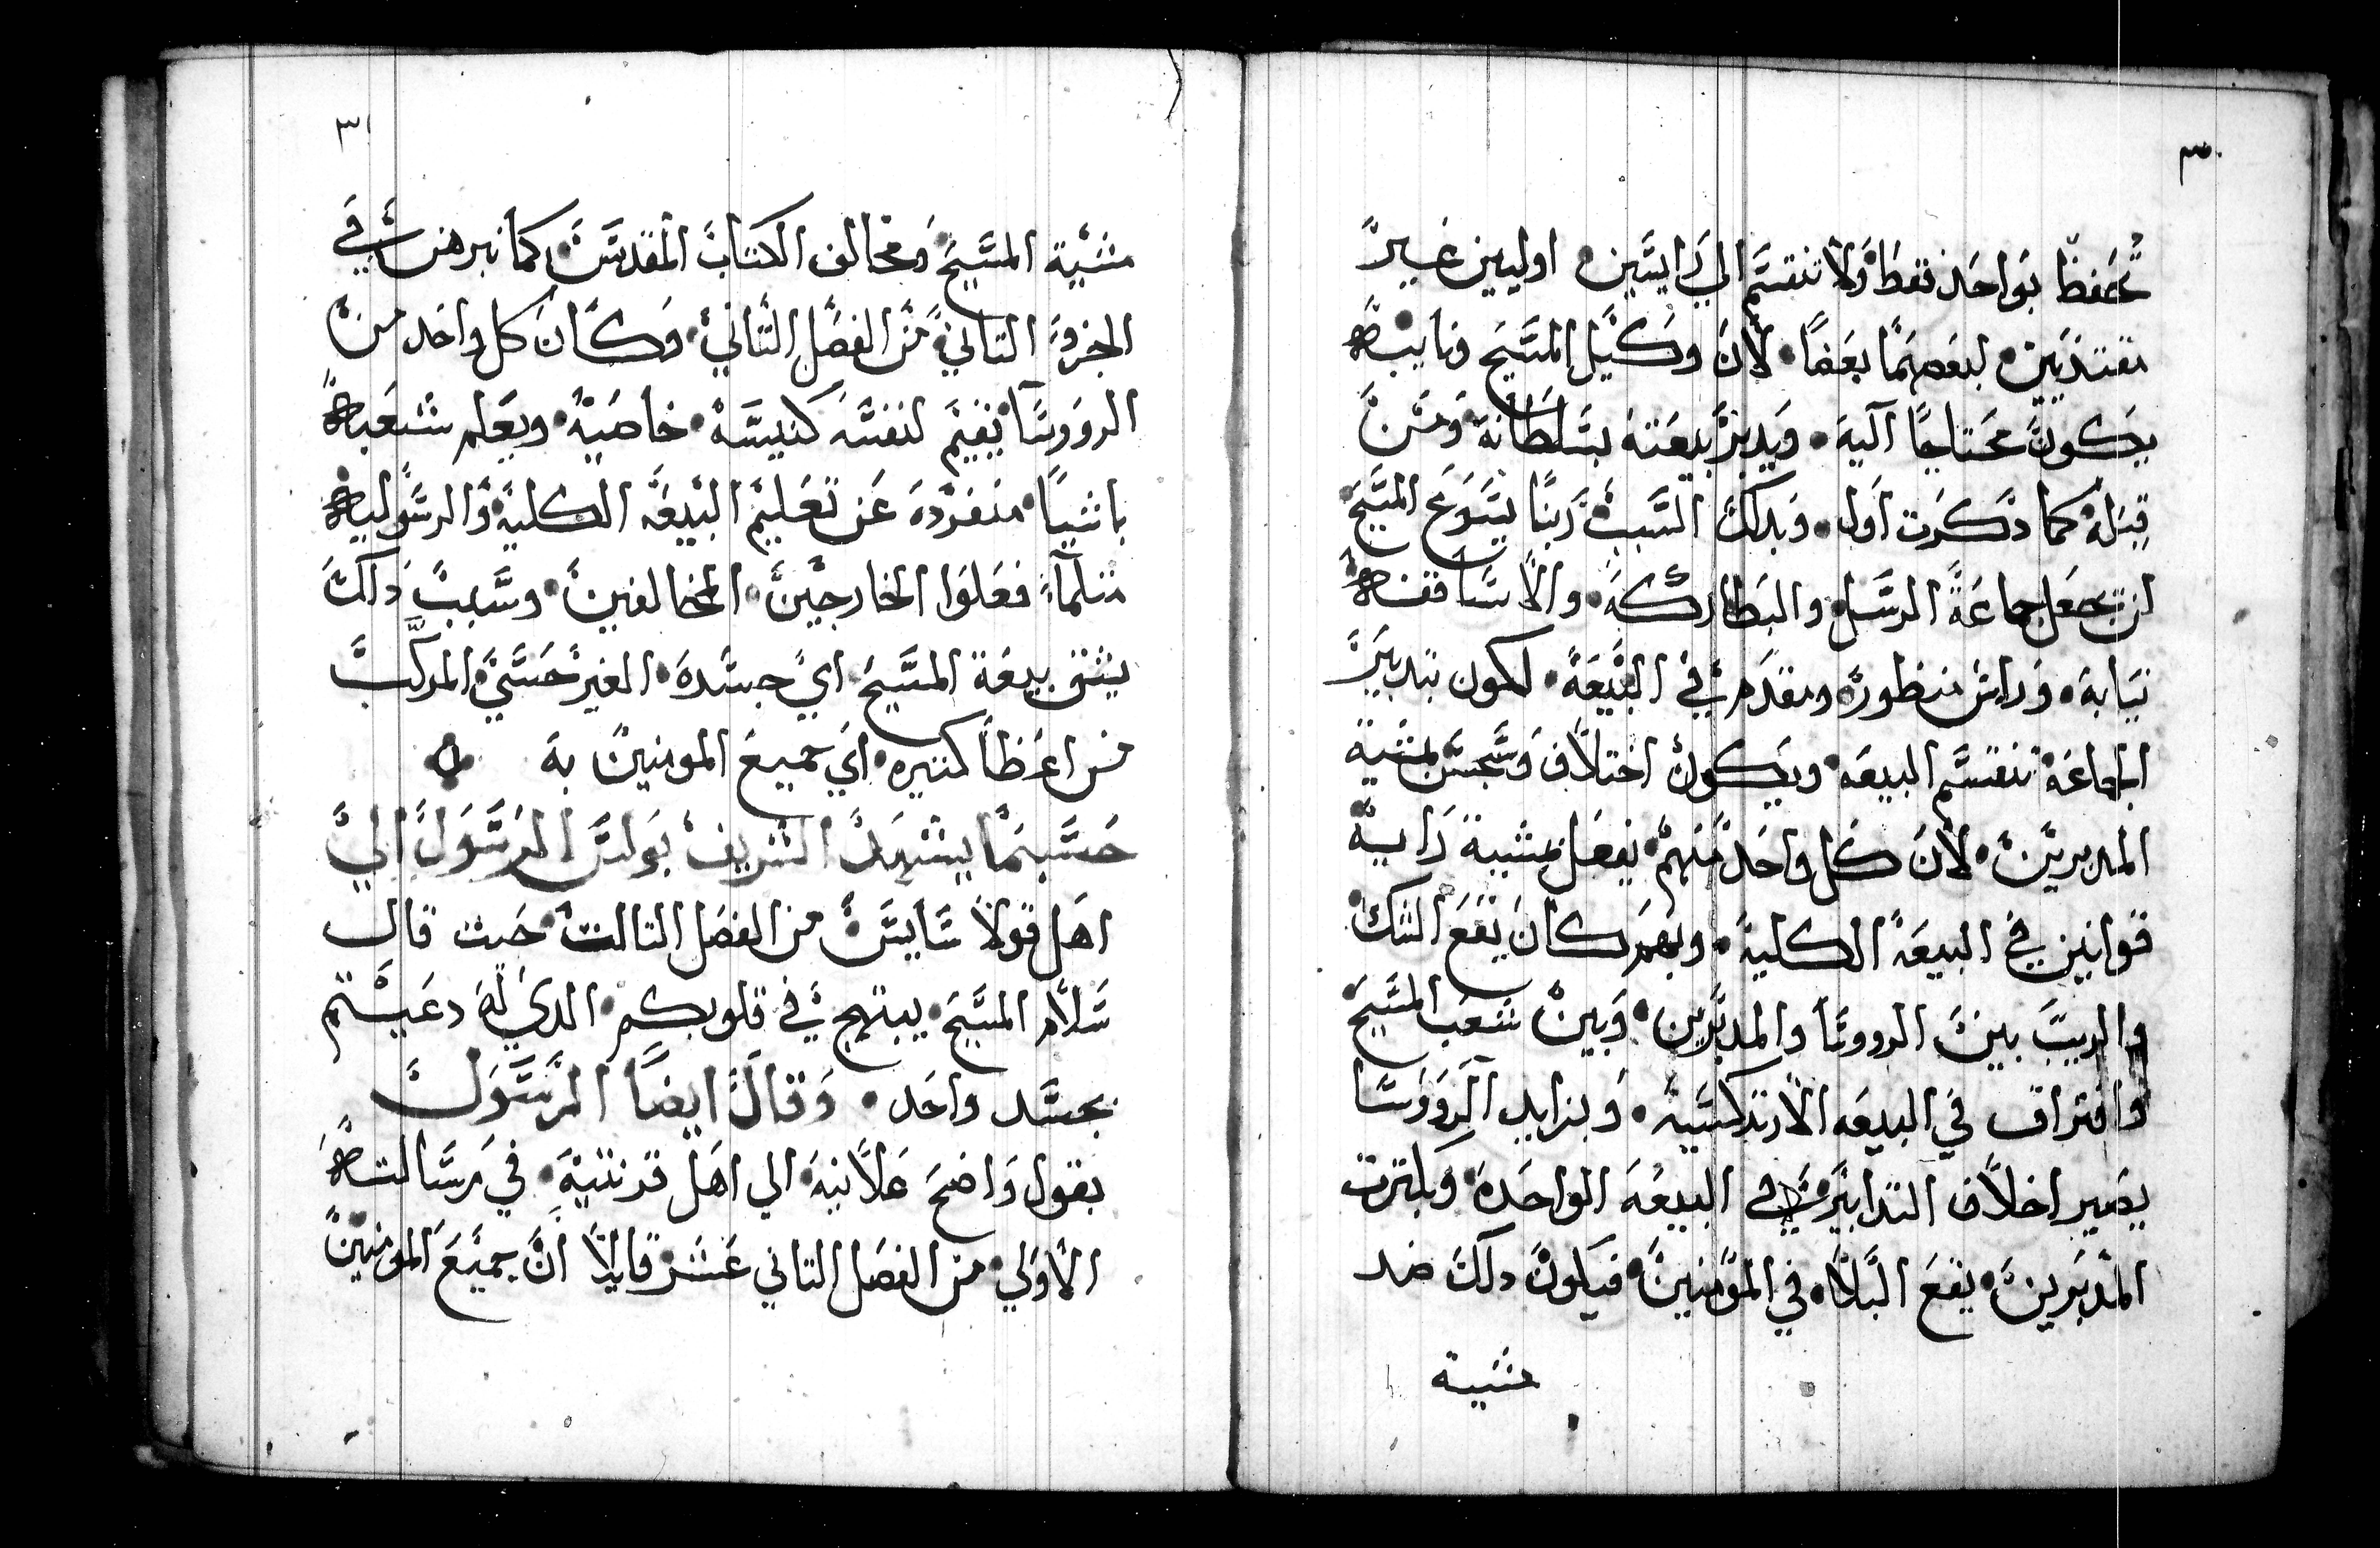 ٣٠
تحفظ بواحد فقط ولا تنقسم الي رايسين اوليين غير
مفتديين لبعضهما بعضا لان وكيل المسيح ونايبه
يكون محتاجا اليه ويدبر بيعته بسلطانه ومن
قبله كما دكرت اول وبدلك السبب ربنا يسوع المسيح
لن يجعل جماعة الرسل والبطاركه والاساقفه
نيابة وراس منظوره ومقدم في البيعة لكون بتدبير
الجماعة تنقسم البيعه ويكون اختلاف وسجس بمشية
المدبرين لان كل واحد منهم يفعل بمشية رايه
قوانين في البيعه الكليه وبهم كان يقع الشك
والريب بين الرووسا والمدبرين وبين شعب المسيح
وافتراق في البيعه الارتدكسيه وبزايد الرووسا
يصير اخلاف التدابير في البيعه الواحده وبكترت
المدبرين يقع البلاه في المومنين فيكون دلك ضد
مشية
٣١
مشية المسيح ومخالف الكتاب المقدس كما نبرهن في
الجزو التاني من الفصل التاني وكان كل واحد من
الرووسا يقيم لنفسه كنيسه خاصيه ويعلم شعبه
باشيا منفرده عن تعليم البيعه الكليه والرسوليه
متلما فعلوا الخارجين المخالفين وسبب دالك
يشق بيعة المسيح اي جسده الغير حسي المركب
من اعظا كتيره اي جميع المومنين به
حسبما يشهد الشريف بولس الرسول الي
اهل قولاسايس من الفصل التالت حيت قال
سلام المسيح يبتهج في قلوبكم الدي له دعيتم
بجسد واحد وقال ايضا الرسول
بقول واضح علانية الي اهل قرنتية في رسالته
الاولي من الفصل التاني عشر قايلا ان جميع المومنين